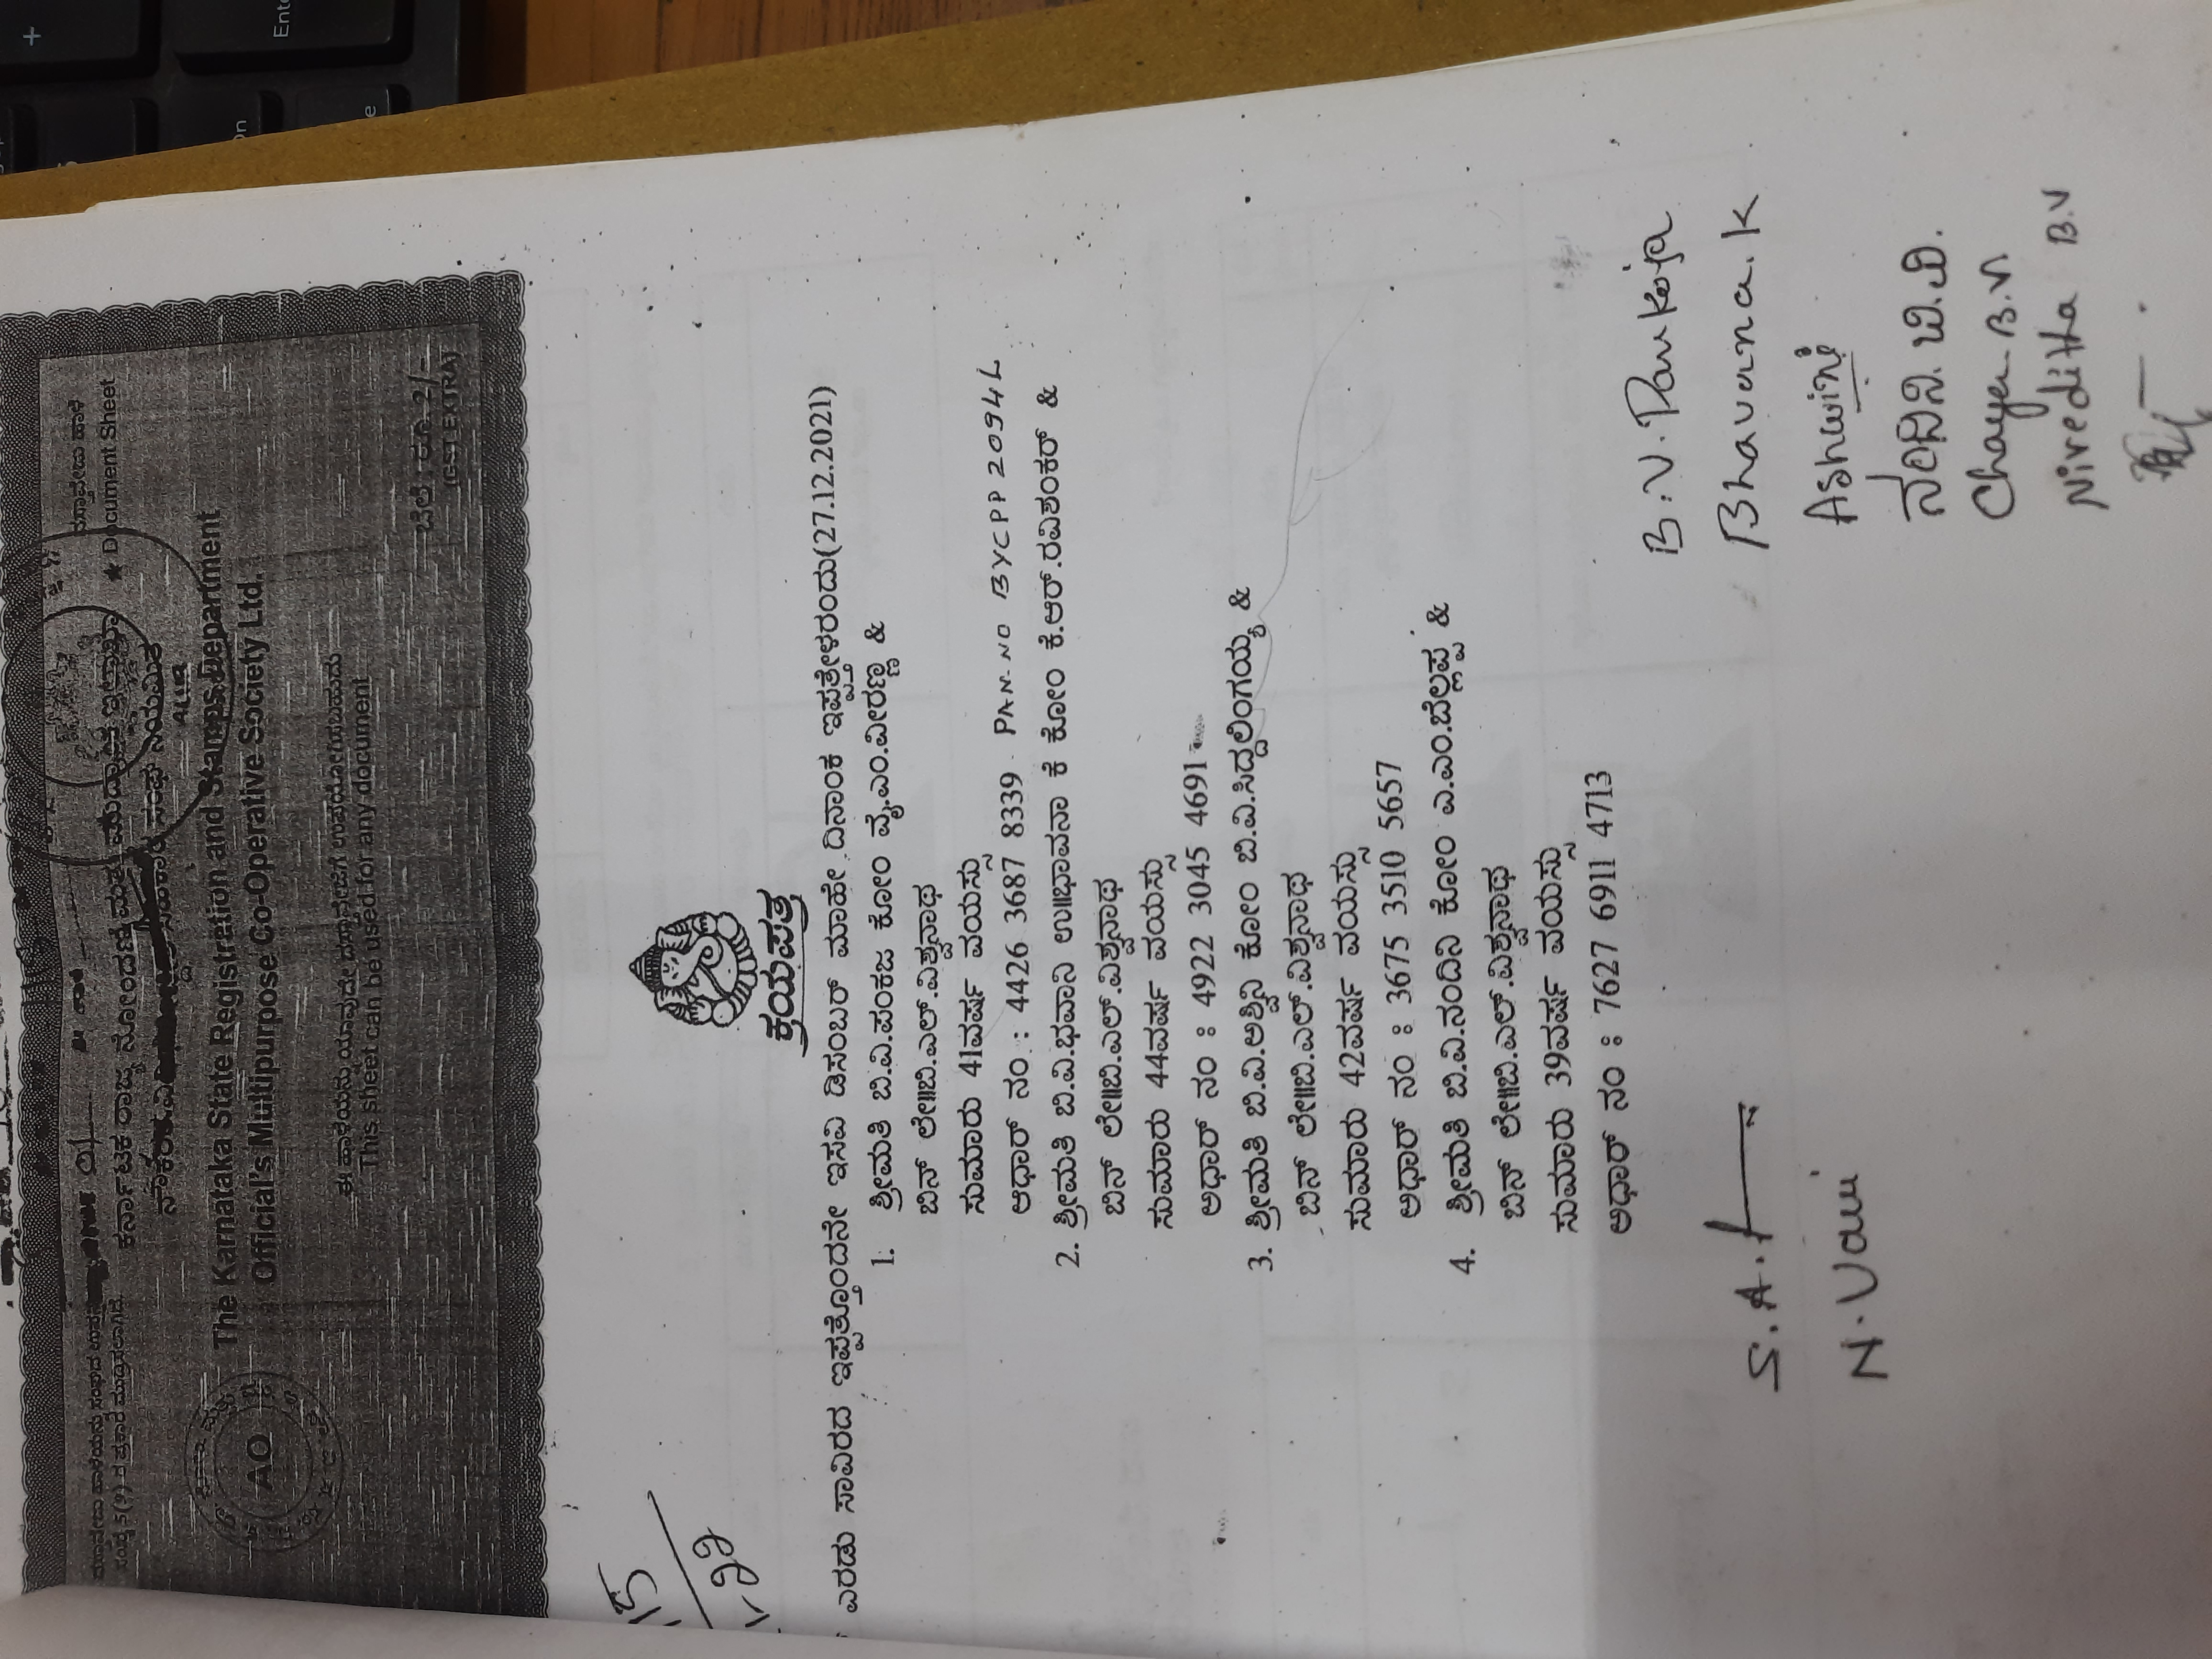 ದಸ್ತಾವೇಜು ಹಾಳೆ
Document Sheet
ಕರ್ನಾಟಕ ರಾಜ್ಯ ನೋಂದಣಿ ಮತ್ತು ಮುದ್ರಾಂಕ ಇಲಾಖಾ
The Karnataka State Registration and Stamps Department
Official's Multipurpose Co-Operative Society Ltd.
ಈ ಹಾಳೆಯನ್ನು ಯಾವುದೇ ದಸ್ತಾವೇಜಿಗೆ ಉಪಯೋಗಿಸಬಹುದು
This sheet can be used for any document
ಬೆಲೆ : ರೂ. 2/-
(GST EXTRA)
AO
ಕ್ರಯಪತ್ರ
ಎರಡು ಸಾವಿರದ ಇಪ್ಪತ್ತೊಂದನೇ ಇಸವಿ ಡಿಸಂಬರ್ ಮಾಹೇ ದಿನಾಂಕ ಇಪ್ಪತ್ತೇಳರಂದು(27.12.2021)
1. ಶ್ರೀಮತಿ ಬಿ.ವಿ.ಪಂಕಜ ಕೋಂ ವೈ.ಎಂ.ವೀರಣ್ಣ &
ಬಿನ್ ಲೇ॥ಬಿ.ಎಲ್.ವಿಶ್ವನಾಥ
ಸುಮಾರು 41ವರ್ಷ ವಯಸ್ಸು
ಆಧಾರ್ ನಂ : 4426 3687 8339 PAN-NO BYCPP2094L
2. ಶ್ರೀಮತಿ ಬಿ.ವಿ.ಭವಾನಿ ಉ॥ಭಾವನಾ ಕೆ ಕೋಂ ಕೆ.ಆರ್.ರವಿಶಂಕರ್ &
ಬಿನ್ ಲೇ॥ಬಿ.ಎಲ್.ವಿಶ್ವನಾಥ
ಸುಮಾರು 44ವರ್ಷ ವಯಸ್ಸು
ಆಧಾರ್ ನಂ : 4922 3045 4691
3. ಶ್ರೀಮತಿ ಬಿ.ವಿ.ಅಶ್ವಿನಿ ಕೋಂ ಬಿ.ವಿ.ಸಿದ್ದಲಿಂಗಯ್ಯ &
ಬಿನ್ ಲೇ॥ಬಿ.ಎಲ್.ವಿಶ್ವನಾಥ
ಸುಮಾರು 42ವರ್ಷ ವಯಸ್ಸು
ಆಧಾರ್ ನಂ : 3675 3510 5657
4. ಶ್ರೀಮತಿ ಬಿ.ವಿ.ನಂದಿನಿ ಕೋಂ ಎ.ಎಂ.ಬೆಲ್ಲಪ್ಪ &
ಬಿನ್ ಲೇ॥ಬಿ.ಎಲ್.ವಿಶ್ವನಾಥ
ಸುಮಾರು 39ವರ್ಷ ವಯಸ್ಸು
ಆಧಾರ್ ನಂ : 7627 6911 4713
B.V.Pankaja
Bhavana.K
Ashwini
ನಂದಿನಿ.ಬಿ.ವಿ.
Chaya B.V
Niveditha B.V
S.A.
N.Vani